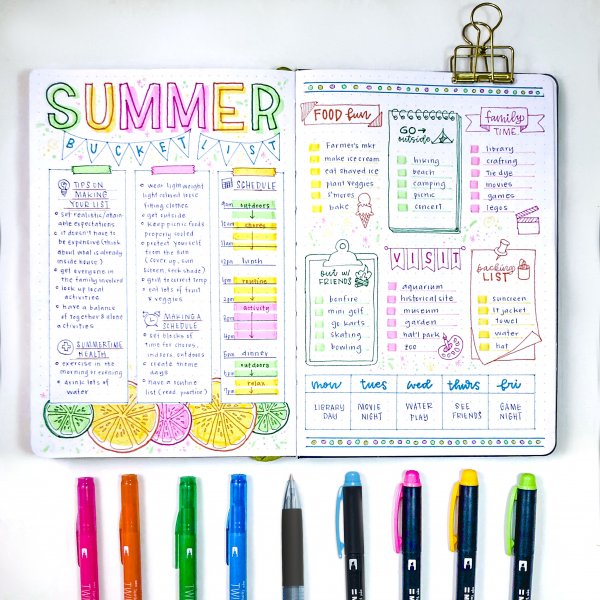 SUMMER
BUCKET LIST
TIPS ON
MAKING
YOUR LIST
set realistic/attain
able expectations
it doesn't have to
be expensive (think
about what is already
inside house)
get everyone in
the family involved
look up local
activities
have a balance
of together & alone
activities
SUMMERTIME
HEALTH
exercise in the
morning or evening
drink lots of
water
wear lightweight
light colored loose
fitting clothes
get outside
keep picnic foods
properly cooled
protect yourself
from the sun
(cover up, sun
screen, seek shade)
eat lots of fruit
& veggies
MAKING A
SCHEDULE
set blocks of
time for chores,
indoors, outdoors
create theme
days
have a routine
SCHEDULE
9am outdoors
chores
12pm lunch
routine
activity
dinner
outdoors
relax
9pm
FOOD fun
Farmer's mkt
make ice cream
eat shaved ice
plant veggies
s'mores
bake
GO →
outside
hiking
beach
camping
picnic
concert
family
TIME
library
crafting
Tie dye
movies
games
legos
OUT W/
FRIENDS
bonfire
mini golf
go karts
skating
bowling
VISIT
aquarium
historical site
museum
garden
nat'l park
zoo
packing
LIST
sunscreen
lt jacket
towel
water
hat
mon tues wed thurs fri
LIBRARY DAY
MOVIE NIGHT
WATER PLAY
SEE FRIENDS
GAME NIGHT